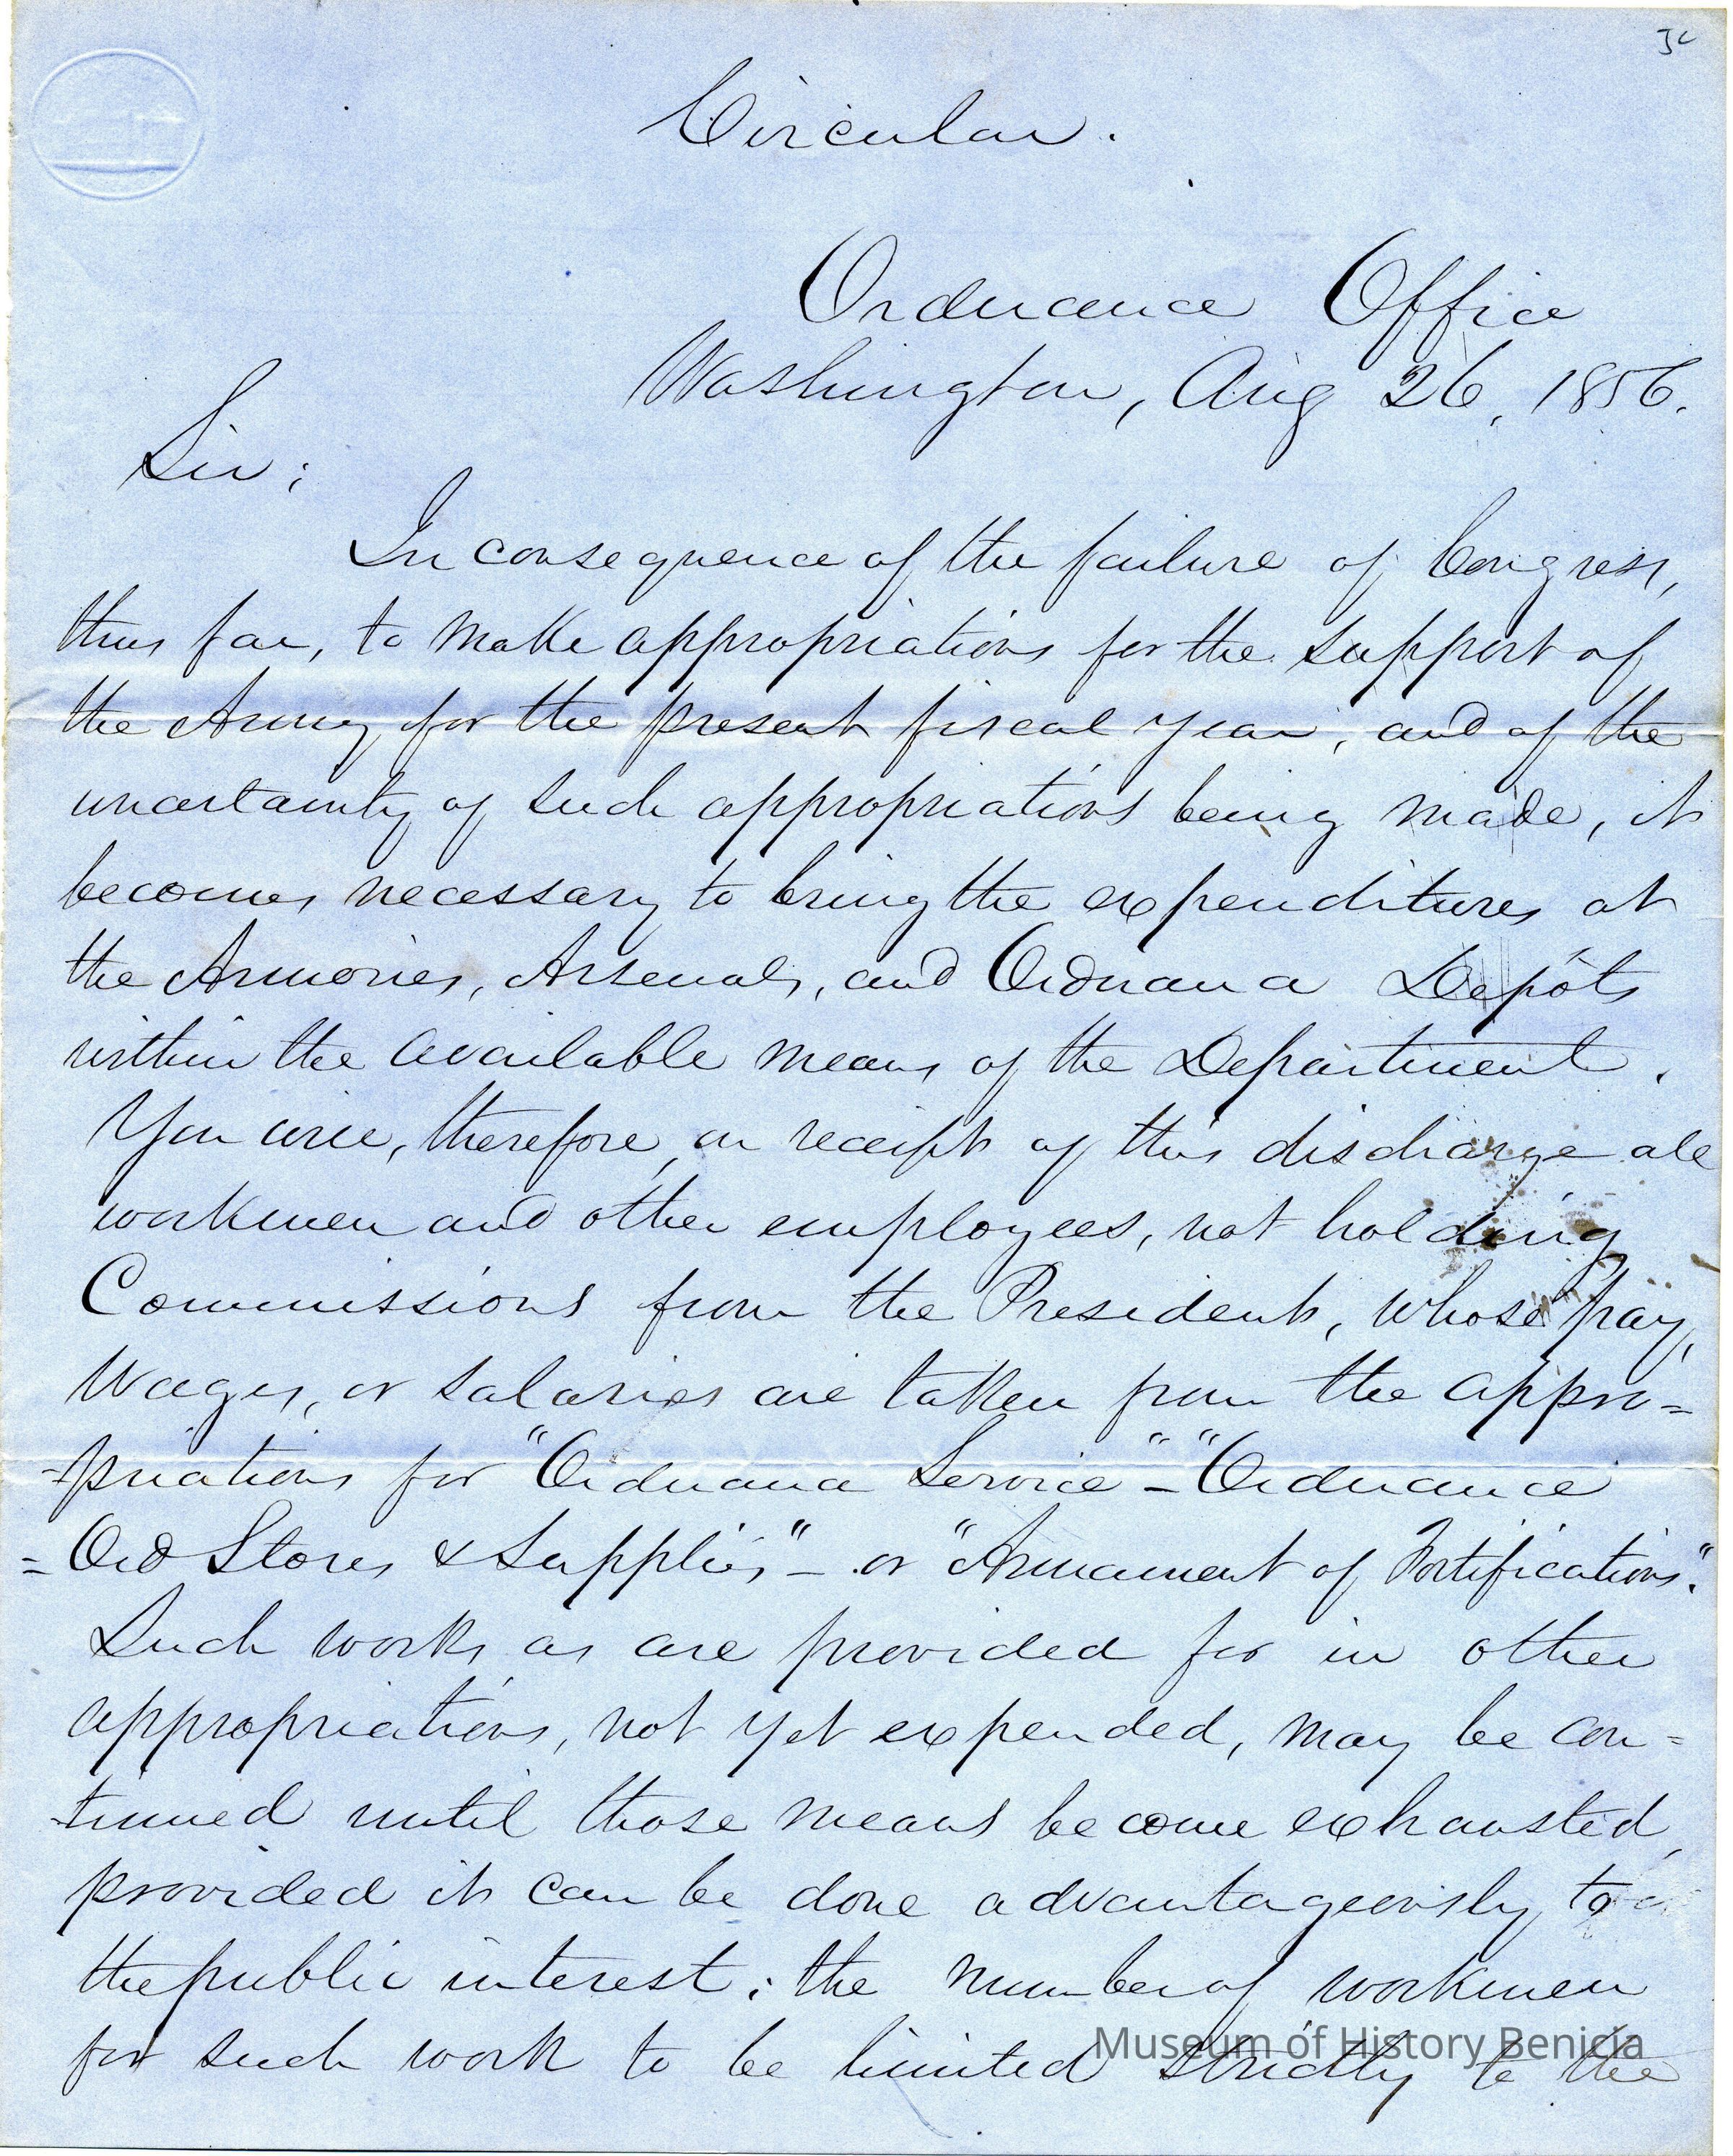 Circular.
Ordnance Office
Washington, Aug 26, 1856.
Sir;
In consequence of the failure of Congress,
thus far, to make appropriations for the support of
the Army for the present fiscal year, and of the
uncertainty of such appropriations being made, it
becomes necessary to bring the expenditures at
the Armories, Arsenals, and Ordnance Depôts
within the available means of the Department.
You will, therefore, on receipt of this discharge all
workmen and other employees, not holding
Commissions from the President, whose pay,
wages, or salaries are taken from the appro=
=priations for "Ordnance Service" - "Ordnance
= Ord Stores & Supplies" - or "Armament of Fortifications."
Such works as are provided for in other
appropriations, not yet expended, may be con=
-tinued until those means become exhausted,
provided it can be done advantageously to
the public interest; the number of workmen
for such work to be limited strictly to the
Museum of History Benicia